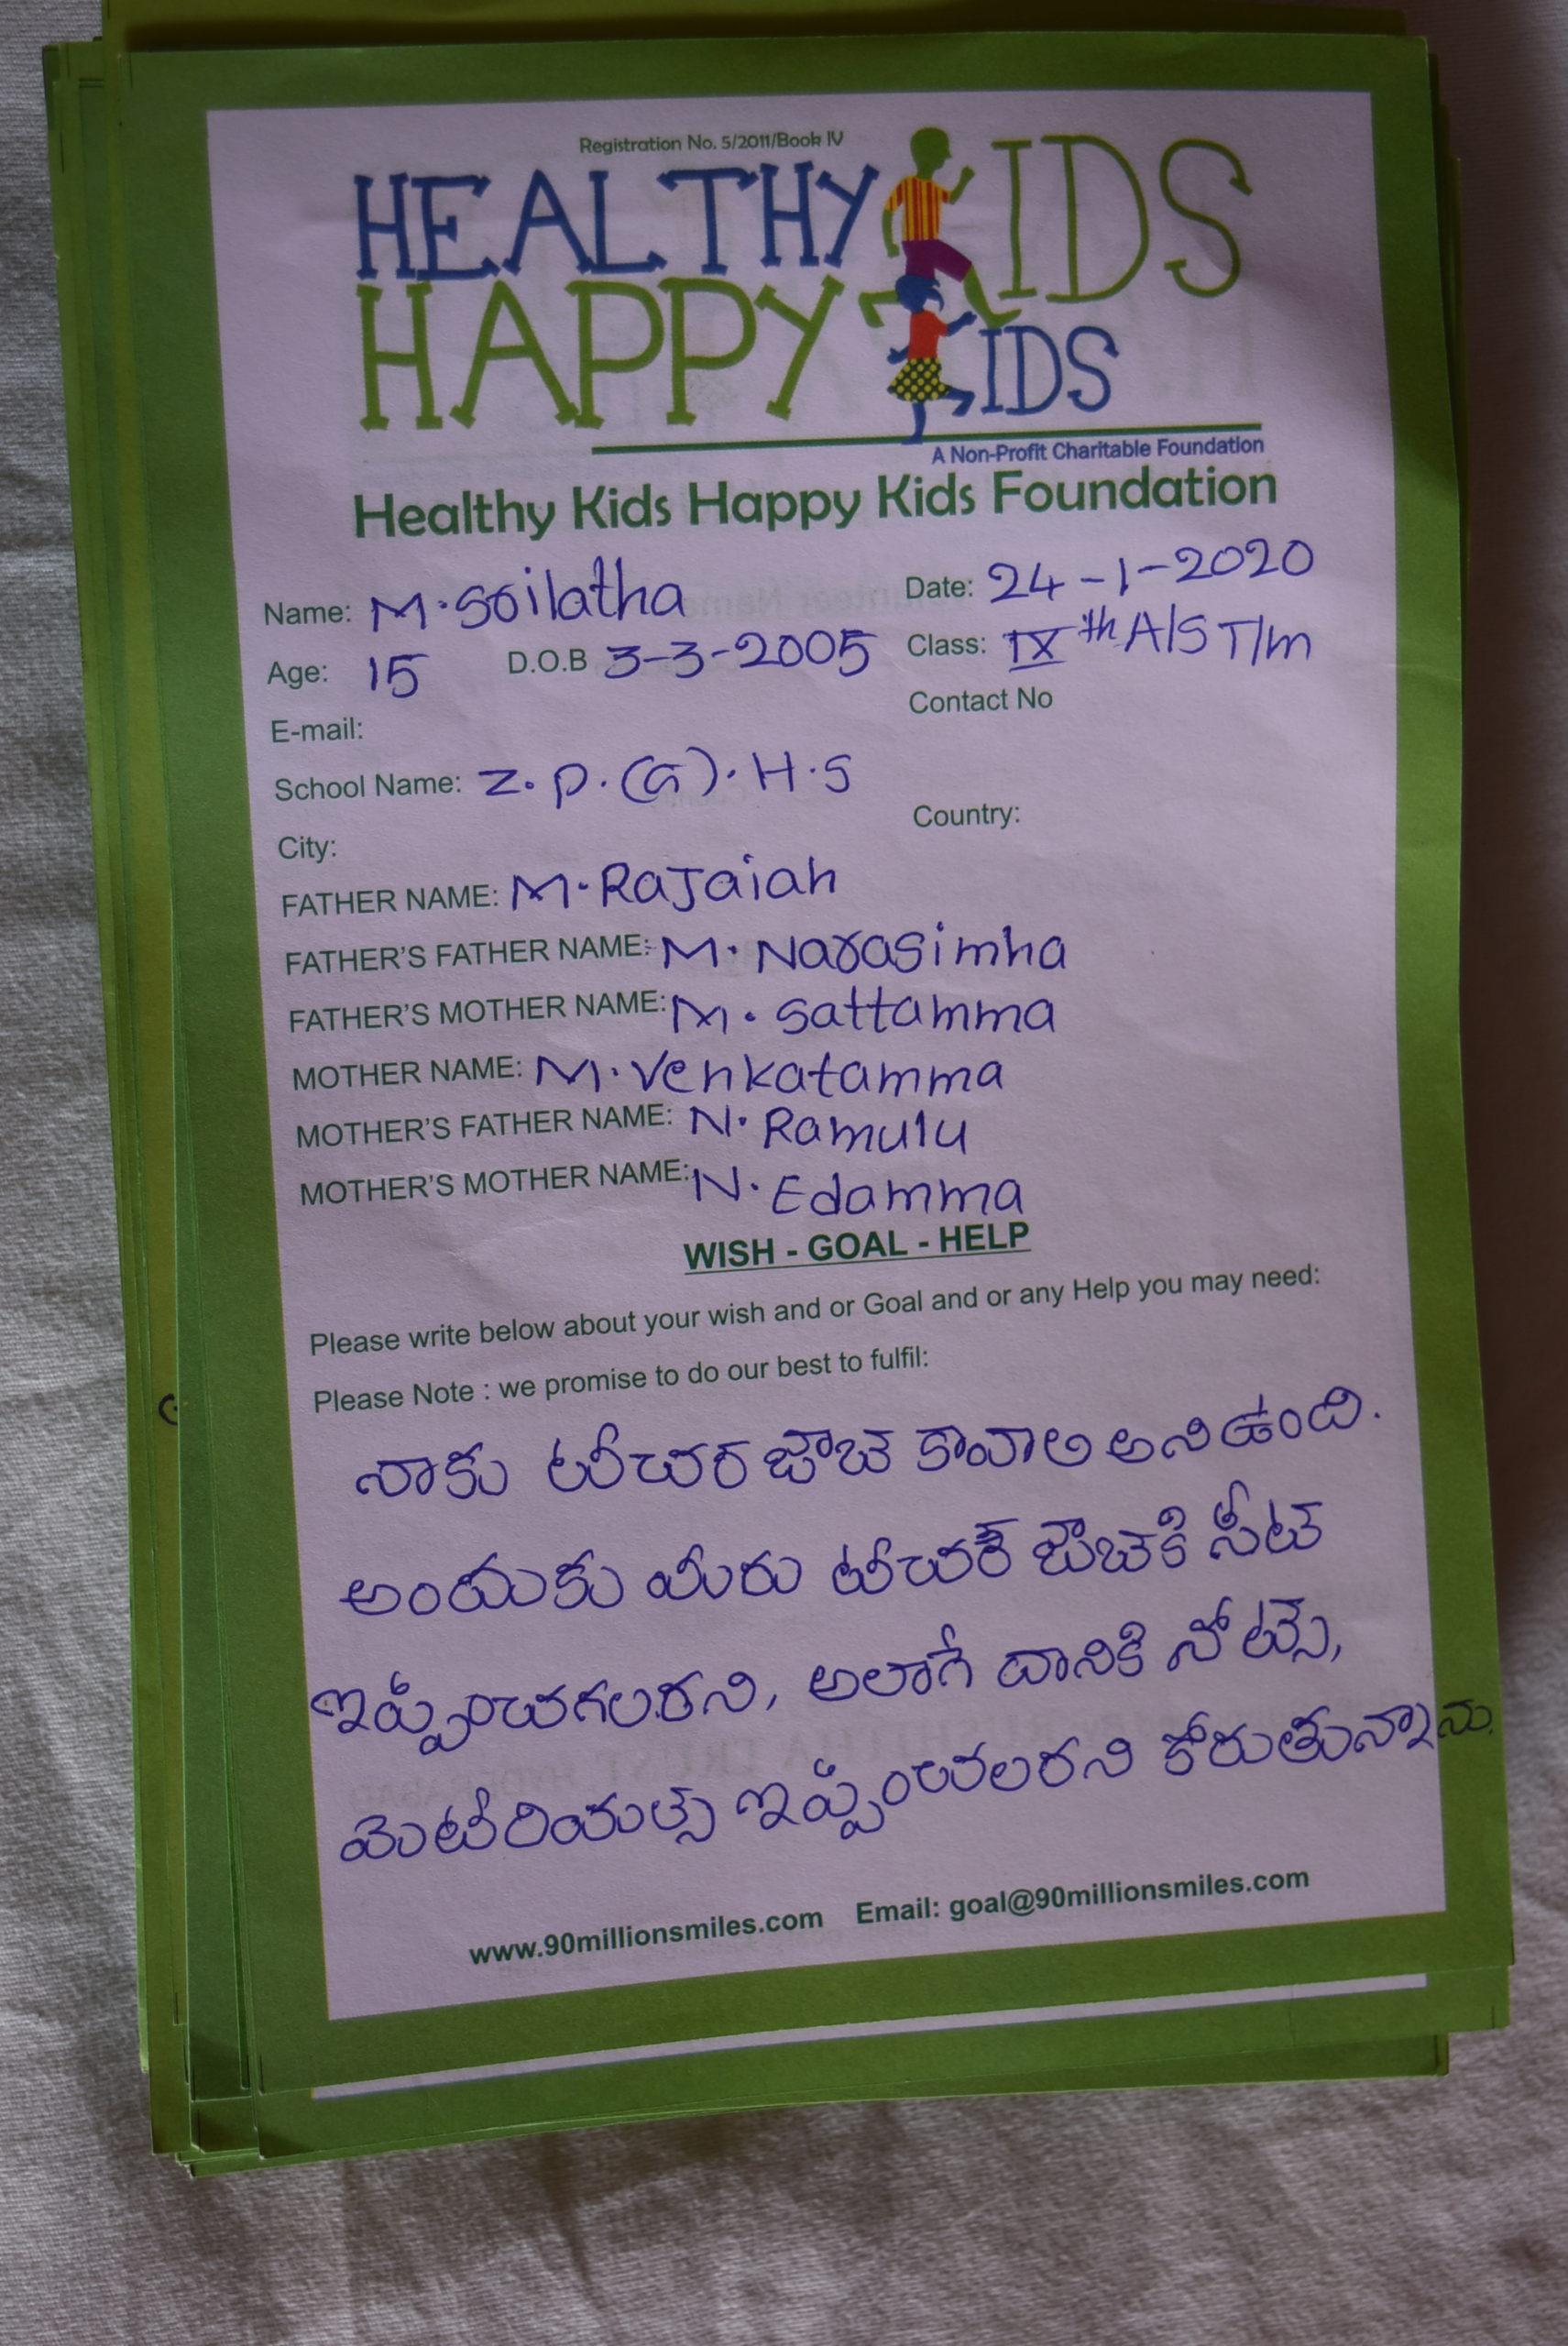 Registration No. 5/2011/Book IV
HEALTHY KIDS
HAPPY KIDS
A Non-Profit Charitable Foundation
Healthy Kids Happy Kids Foundation
Name: M. Soilatha Date: 24-1-2020
Age: 15 D.O.B 3-3-2005 Class: IXth A/S T/m
E-mail: Contact No
School Name: Z.P.(G).H.S
City: Country:
FATHER NAME: M. Rajaiah
FATHER'S FATHER NAME: M. Narasimha
FATHER'S MOTHER NAME: M. Sattamma
MOTHER NAME: M. Venkatamma
MOTHER'S FATHER NAME: N. Ramulu
MOTHER'S MOTHER NAME: N. Edamma
WISH - GOAL - HELP
Please write below about your wish and or Goal and or any Help you may need:
Please Note : we promise to do our best to fulfil:
నాకు టీచర జాబ కావాల అని ఉంది.
అందుకు మీరు టీచర్ జాబ్‌కి సీట్
ఇప్పించగలరని, అలాగే దానికి నోట్స్,
మెటీరియల్స్ ఇప్పించలరని కోరుతున్నాను.
www.90millionsmiles.com Email: goal@90millionsmiles.com